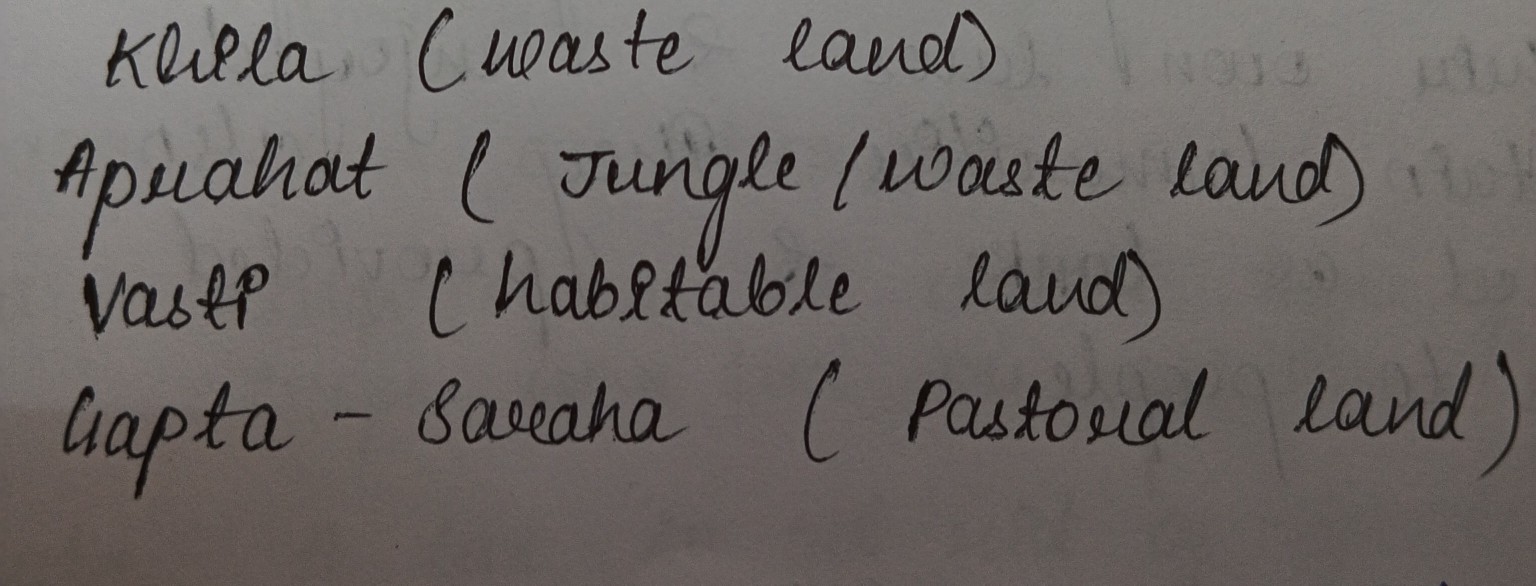 Khila (waste land)
Aprahat ( Jungle / waste land)
Vasti (habitable land)
Gapta - Saraha ( Pastoral land)